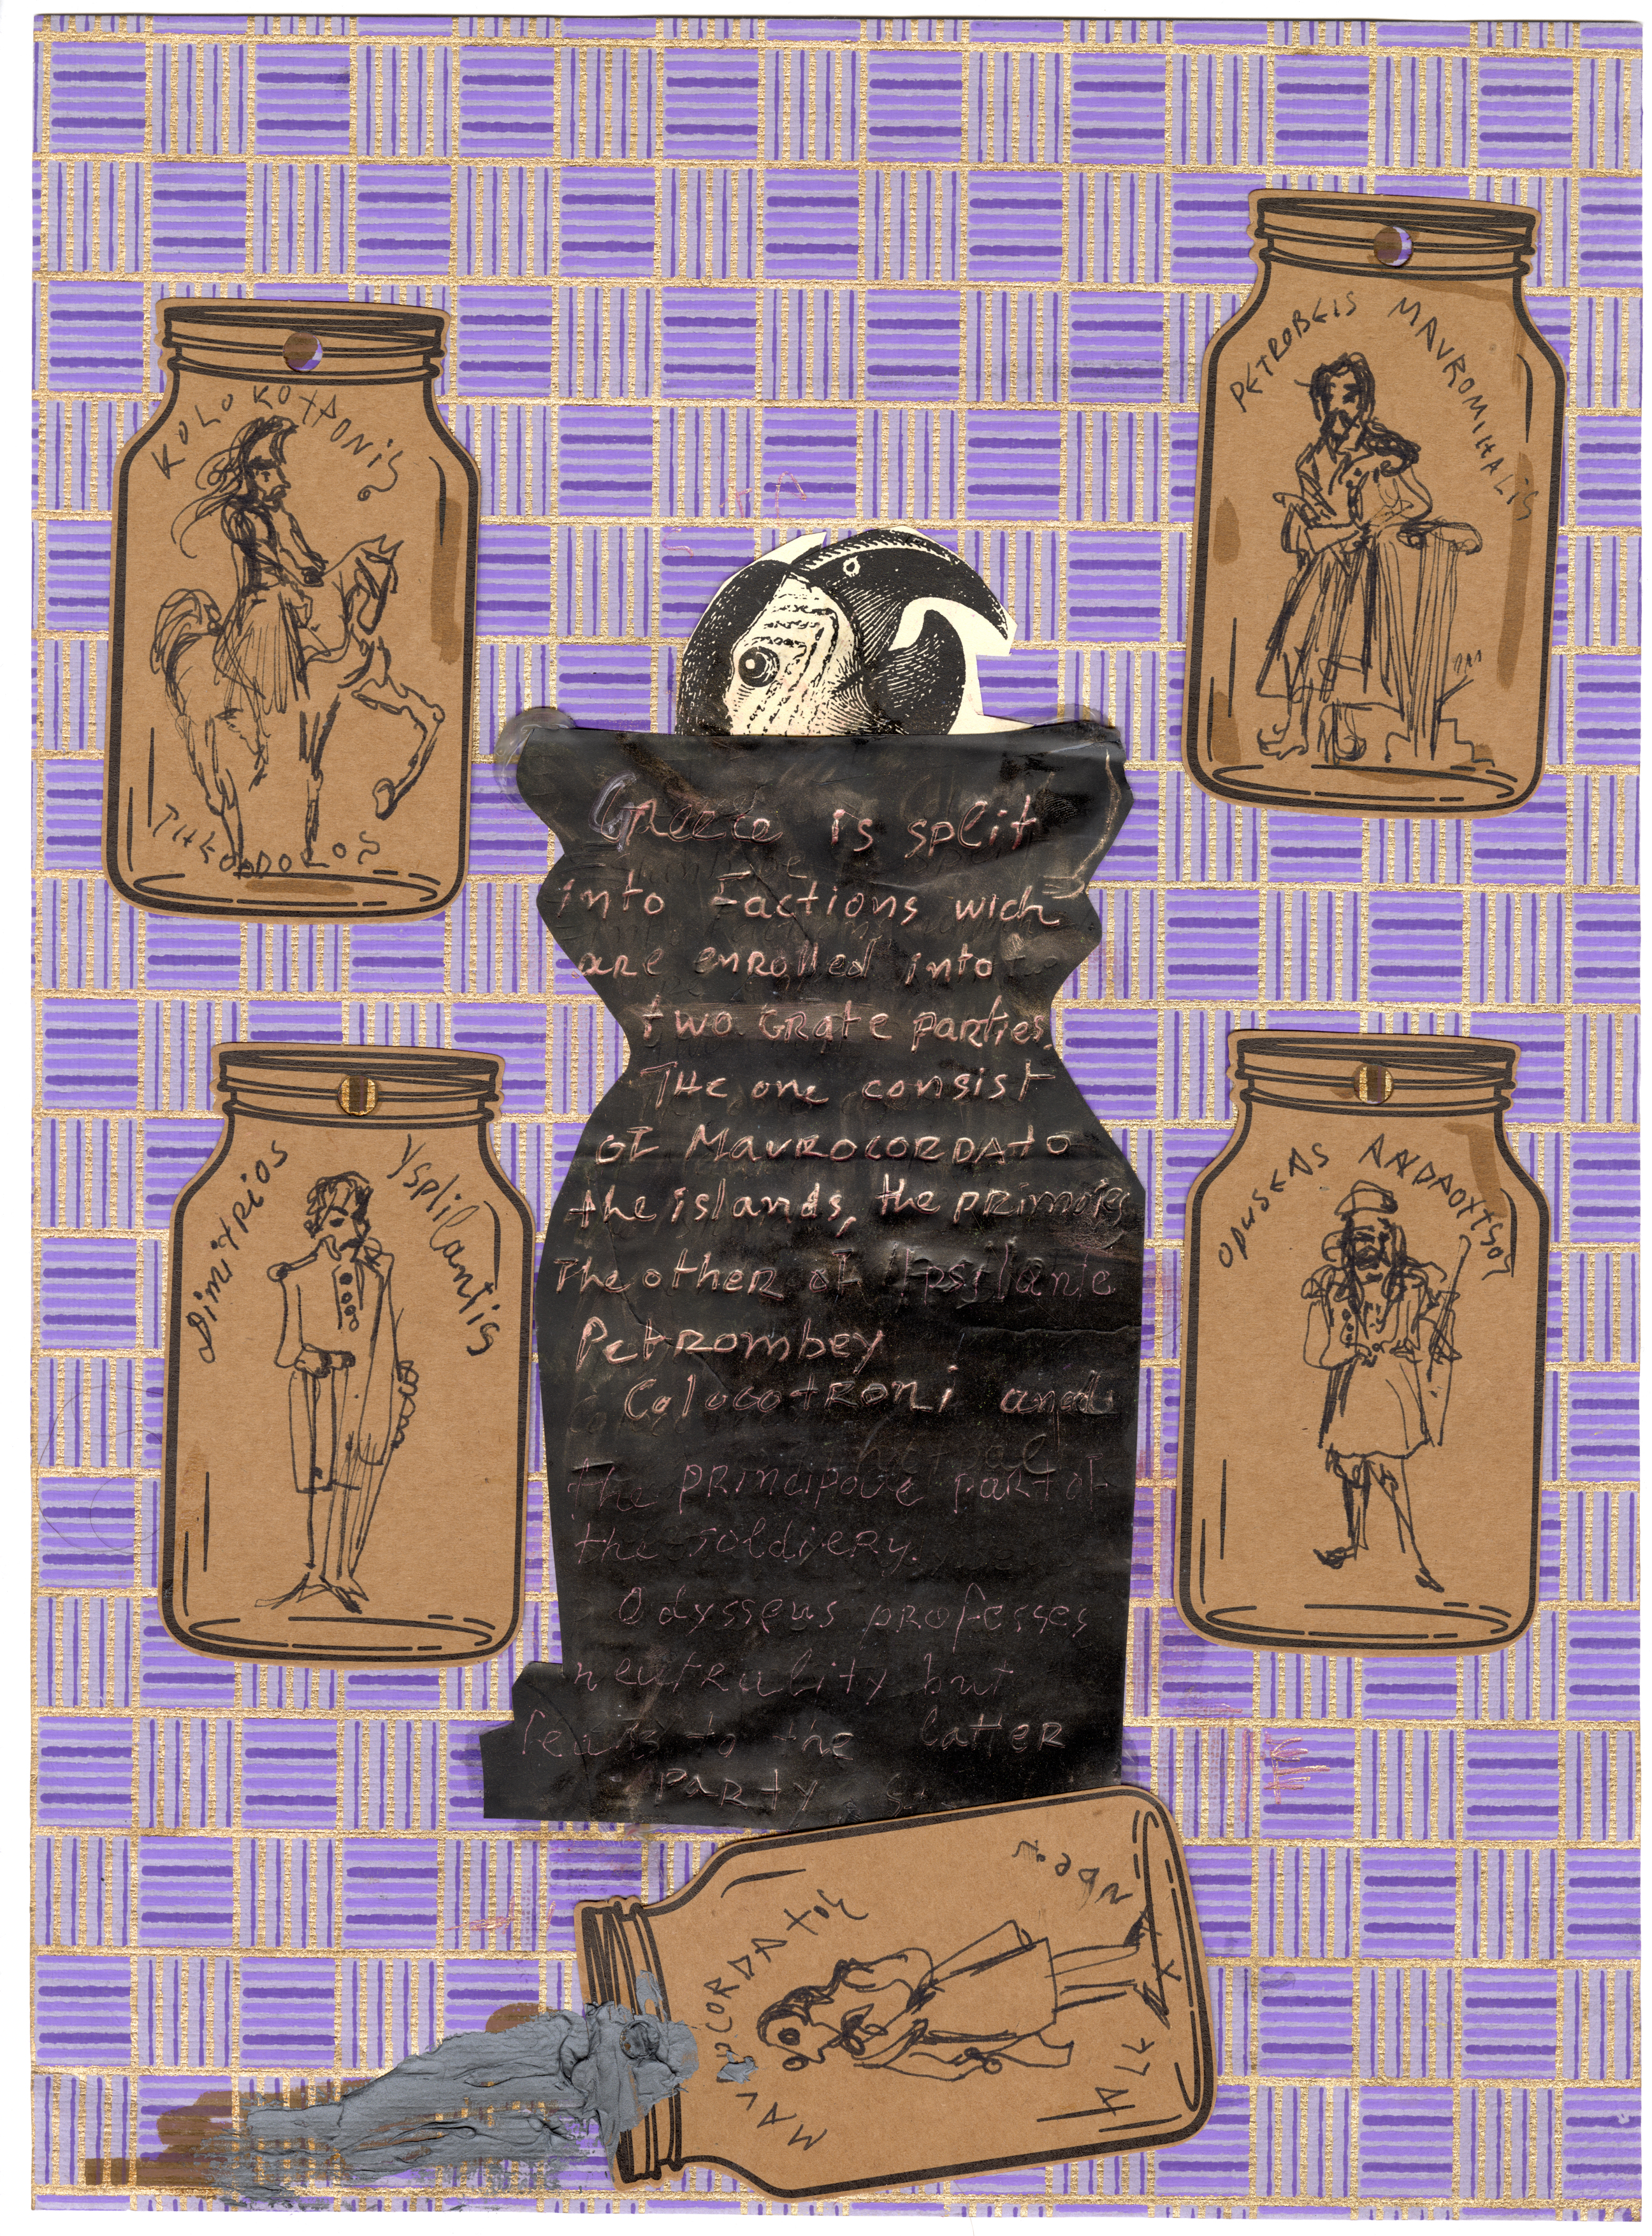 PETROBEIS MAVROMIHALIS
KOLOKOTRONIS
THEODOROS
Greece is split
into Factions wich
are enrolled into
two Grate parties.
THe one consist
of Mavrocordato
the islands, the primates
The other of Ipsilante
Petrombey
Colocotroni and
the principale part of
the Soldiery.
Odysseus professes
neutrality but
leans to the latter
party
Dimitrios Ysplilantis
ODYSEAS
MAVROCORDATOS